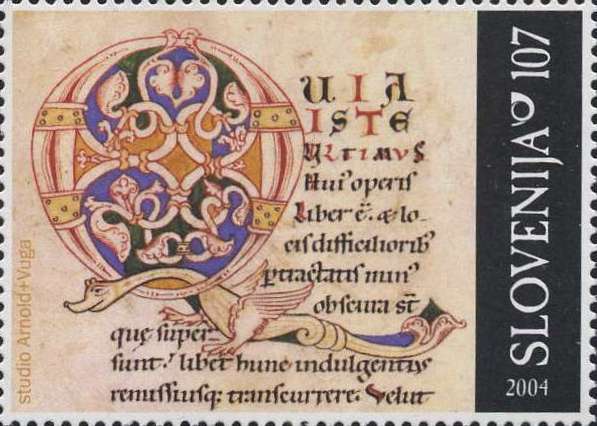 QUIA
ISTE
ULTIMVS
hui᾽ operis
liber ē. & lo-
cis difficiliorib᾽
ꝑtractatis min᾽
obscura st̄
quę super-
sunt. libet hunc indulgentius
remissiusq; transcurrere. Velut
SLOVENIJA 107
2004
studio Arnold+Vuga